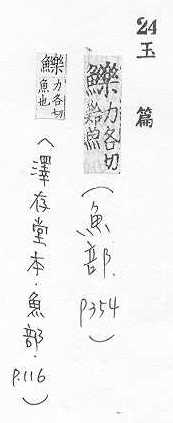 24玉篇
鱳力各切魚名(魚部.P354)
鱳力各切魚也(澤存堂本.魚部.P.116)